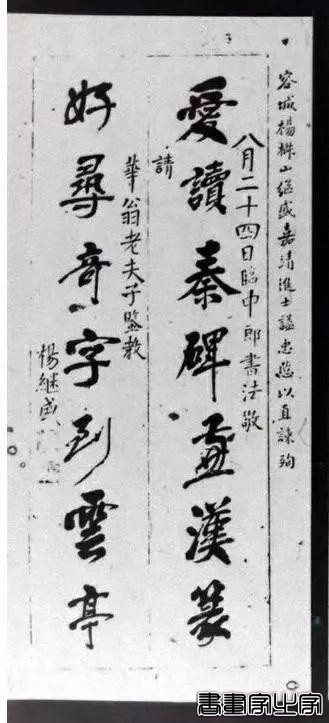 容城楊椒山继盛嘉靖進士謚忠愍以直諫殉
愛讀秦碑漢篆
八月二十四日臨中郎書法敬
請
華翁老夫子鍳教
好尋奇字到雲亭
楊継盛
書畫家